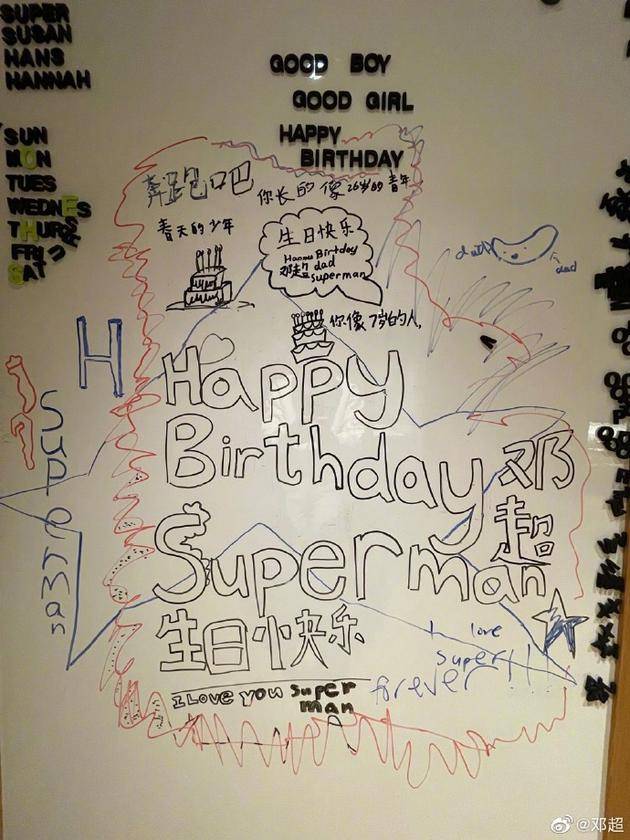 SUPER
SUSAN
HANS
HANNAH
SUN
MON
TUES
WEDNES
THURS
FRI
SAT
GOOD BOY
GOOD GIRL
HAPPY
BIRTHDAY
奔跑吧
你长的像26岁的青年
春天的少年
生日快乐
Birthday
邓超 dad
superman
dad
你像7岁的人,
H
superman
Happy
Birthday 邓超
Superman
生日快乐
I love
super!!!
forever
I Love you super
man
@邓超